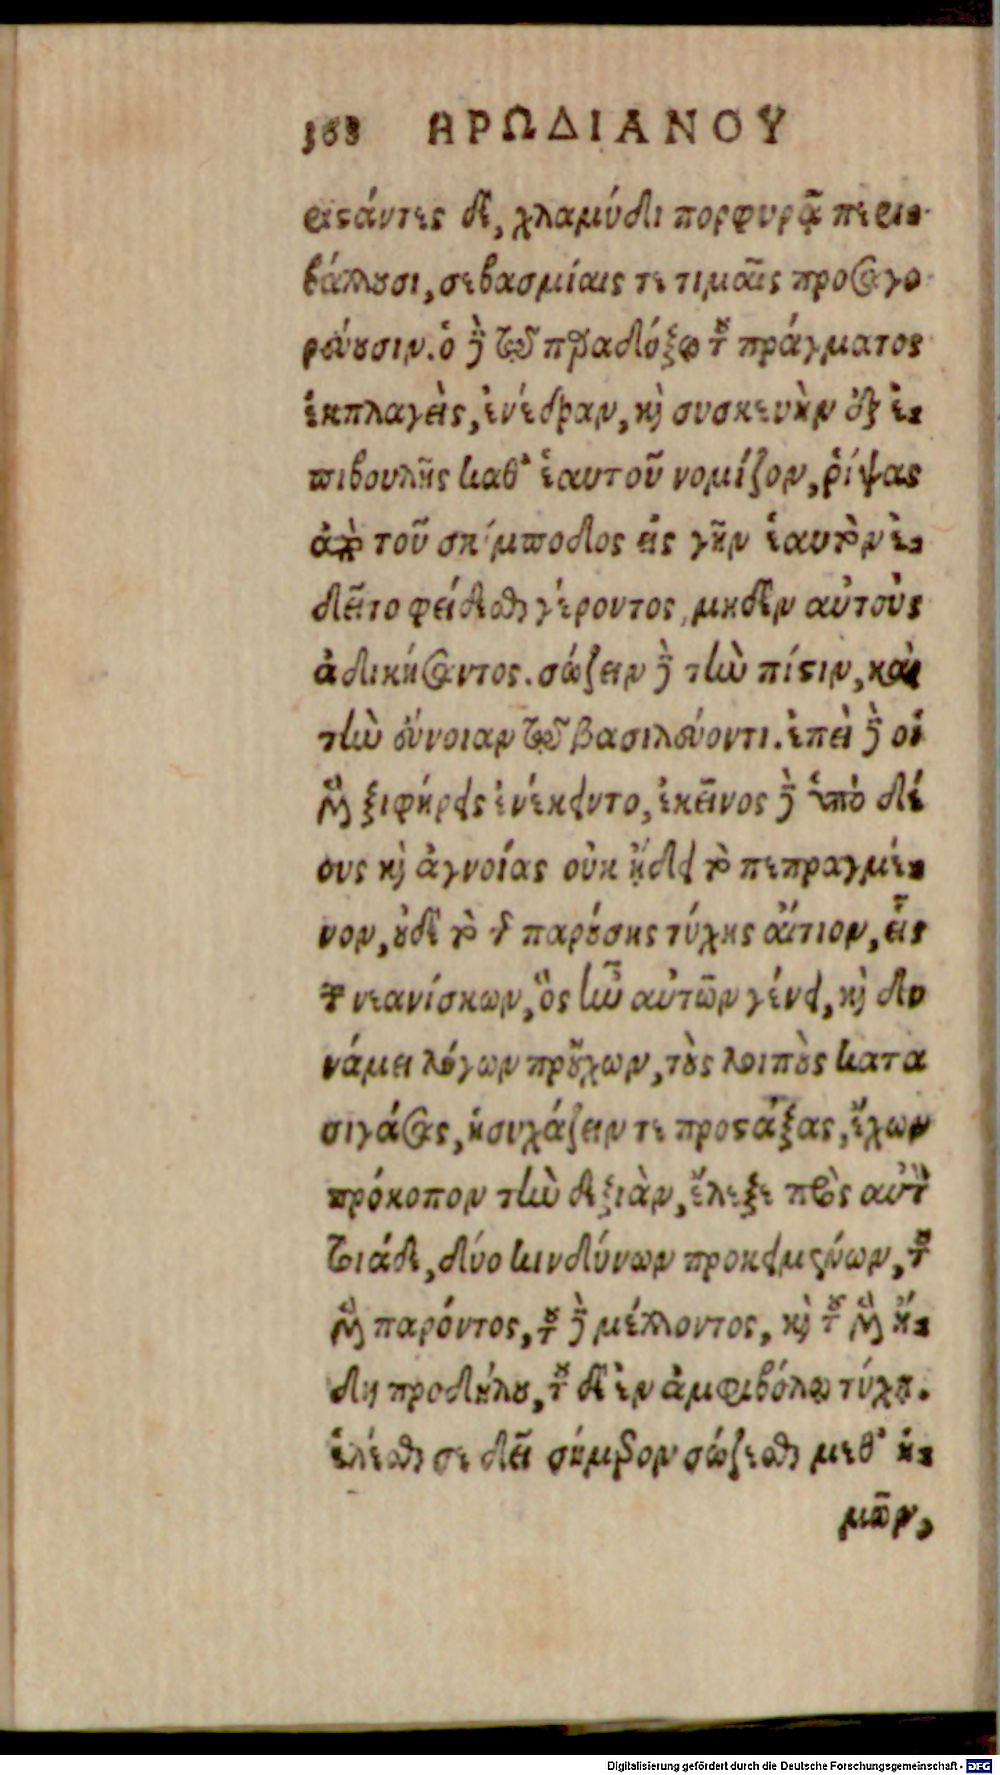 368 ΗΡΩΔΙΑΝΟΥ
ριστάντες δὲ, χλαμύδι πορφυρᾷ περι-
βάλλουσι, σεβασμίαις τε τιμαῖς προσαγο
ρεύουσιν. ὁ δὲ τῷ παραδόξῳ τοῦ πράγματος
ἐκπλαγεὶς, ἐνέδραν, καὶ συσκευὴν ἐξ ἐ-
πιβουλῆς καθ' ἑαυτοῦ νομίζων, ῥίψας
ἀπὸ τοῦ σκίμποδος εἰς γῆν ἑαυτὸν ἐ-
δεῖτο φείδεσθαι γέροντος, μηδὲν αὐτοὺς
ἀδικήσαντος. σώζειν δὲ τὴν πίστιν, καὶ
τὴν εὔνοιαν τῷ βασιλεύοντι. ἐπεὶ δὲ οἱ
μὲν ξιφήρεις ἐνέκειντο, ἐκεῖνος δὲ ὑπὸ δέ
ους καὶ ἀγνοίας οὐκ ᾔδει τὸ πεπραγμέ-
νον, οὐδὲ τὸ τῆς παρούσης τύχης αἴτιον, εἷς
τῶν νεανίσκων, ὃς ἦν αὐτῶν γένει, καὶ δυ
νάμει λόγων προὔχων, τοὺς λοιποὺς κατα
σιγάσας, ἡσυχάζειν τε προστάξας, ἔχων
πρόκοπον τὴν δεξιὰν, ἔλεξε πρὸς αὐτὸν
τοιάδε, δύο κινδύνων προκειμένων, τοῦ
μὲν παρόντος, τοῦ δὲ μέλλοντος, καὶ τοῦ μὲν ἤ-
δη προδήλου, τοῦ δὲ ἐν ἀμφιβόλῳ τύχῃ.
ἑλέσθαι σε δεῖ σήμερον σώζεσθαι μεθ' ἡ-
μῶν,
Digitalisierung gefördert durch die Deutsche Forschungsgemeinschaft - DFG